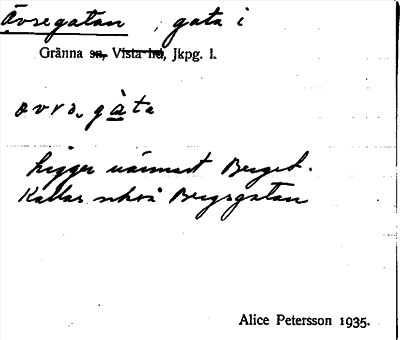 Övregatan, gata i
Gränna sn, Vista hd, Jkpg. l.
övrə gàta
Ligger närmast Berget.
Kallas också Bergsgatan
Alice Petersson 1935.